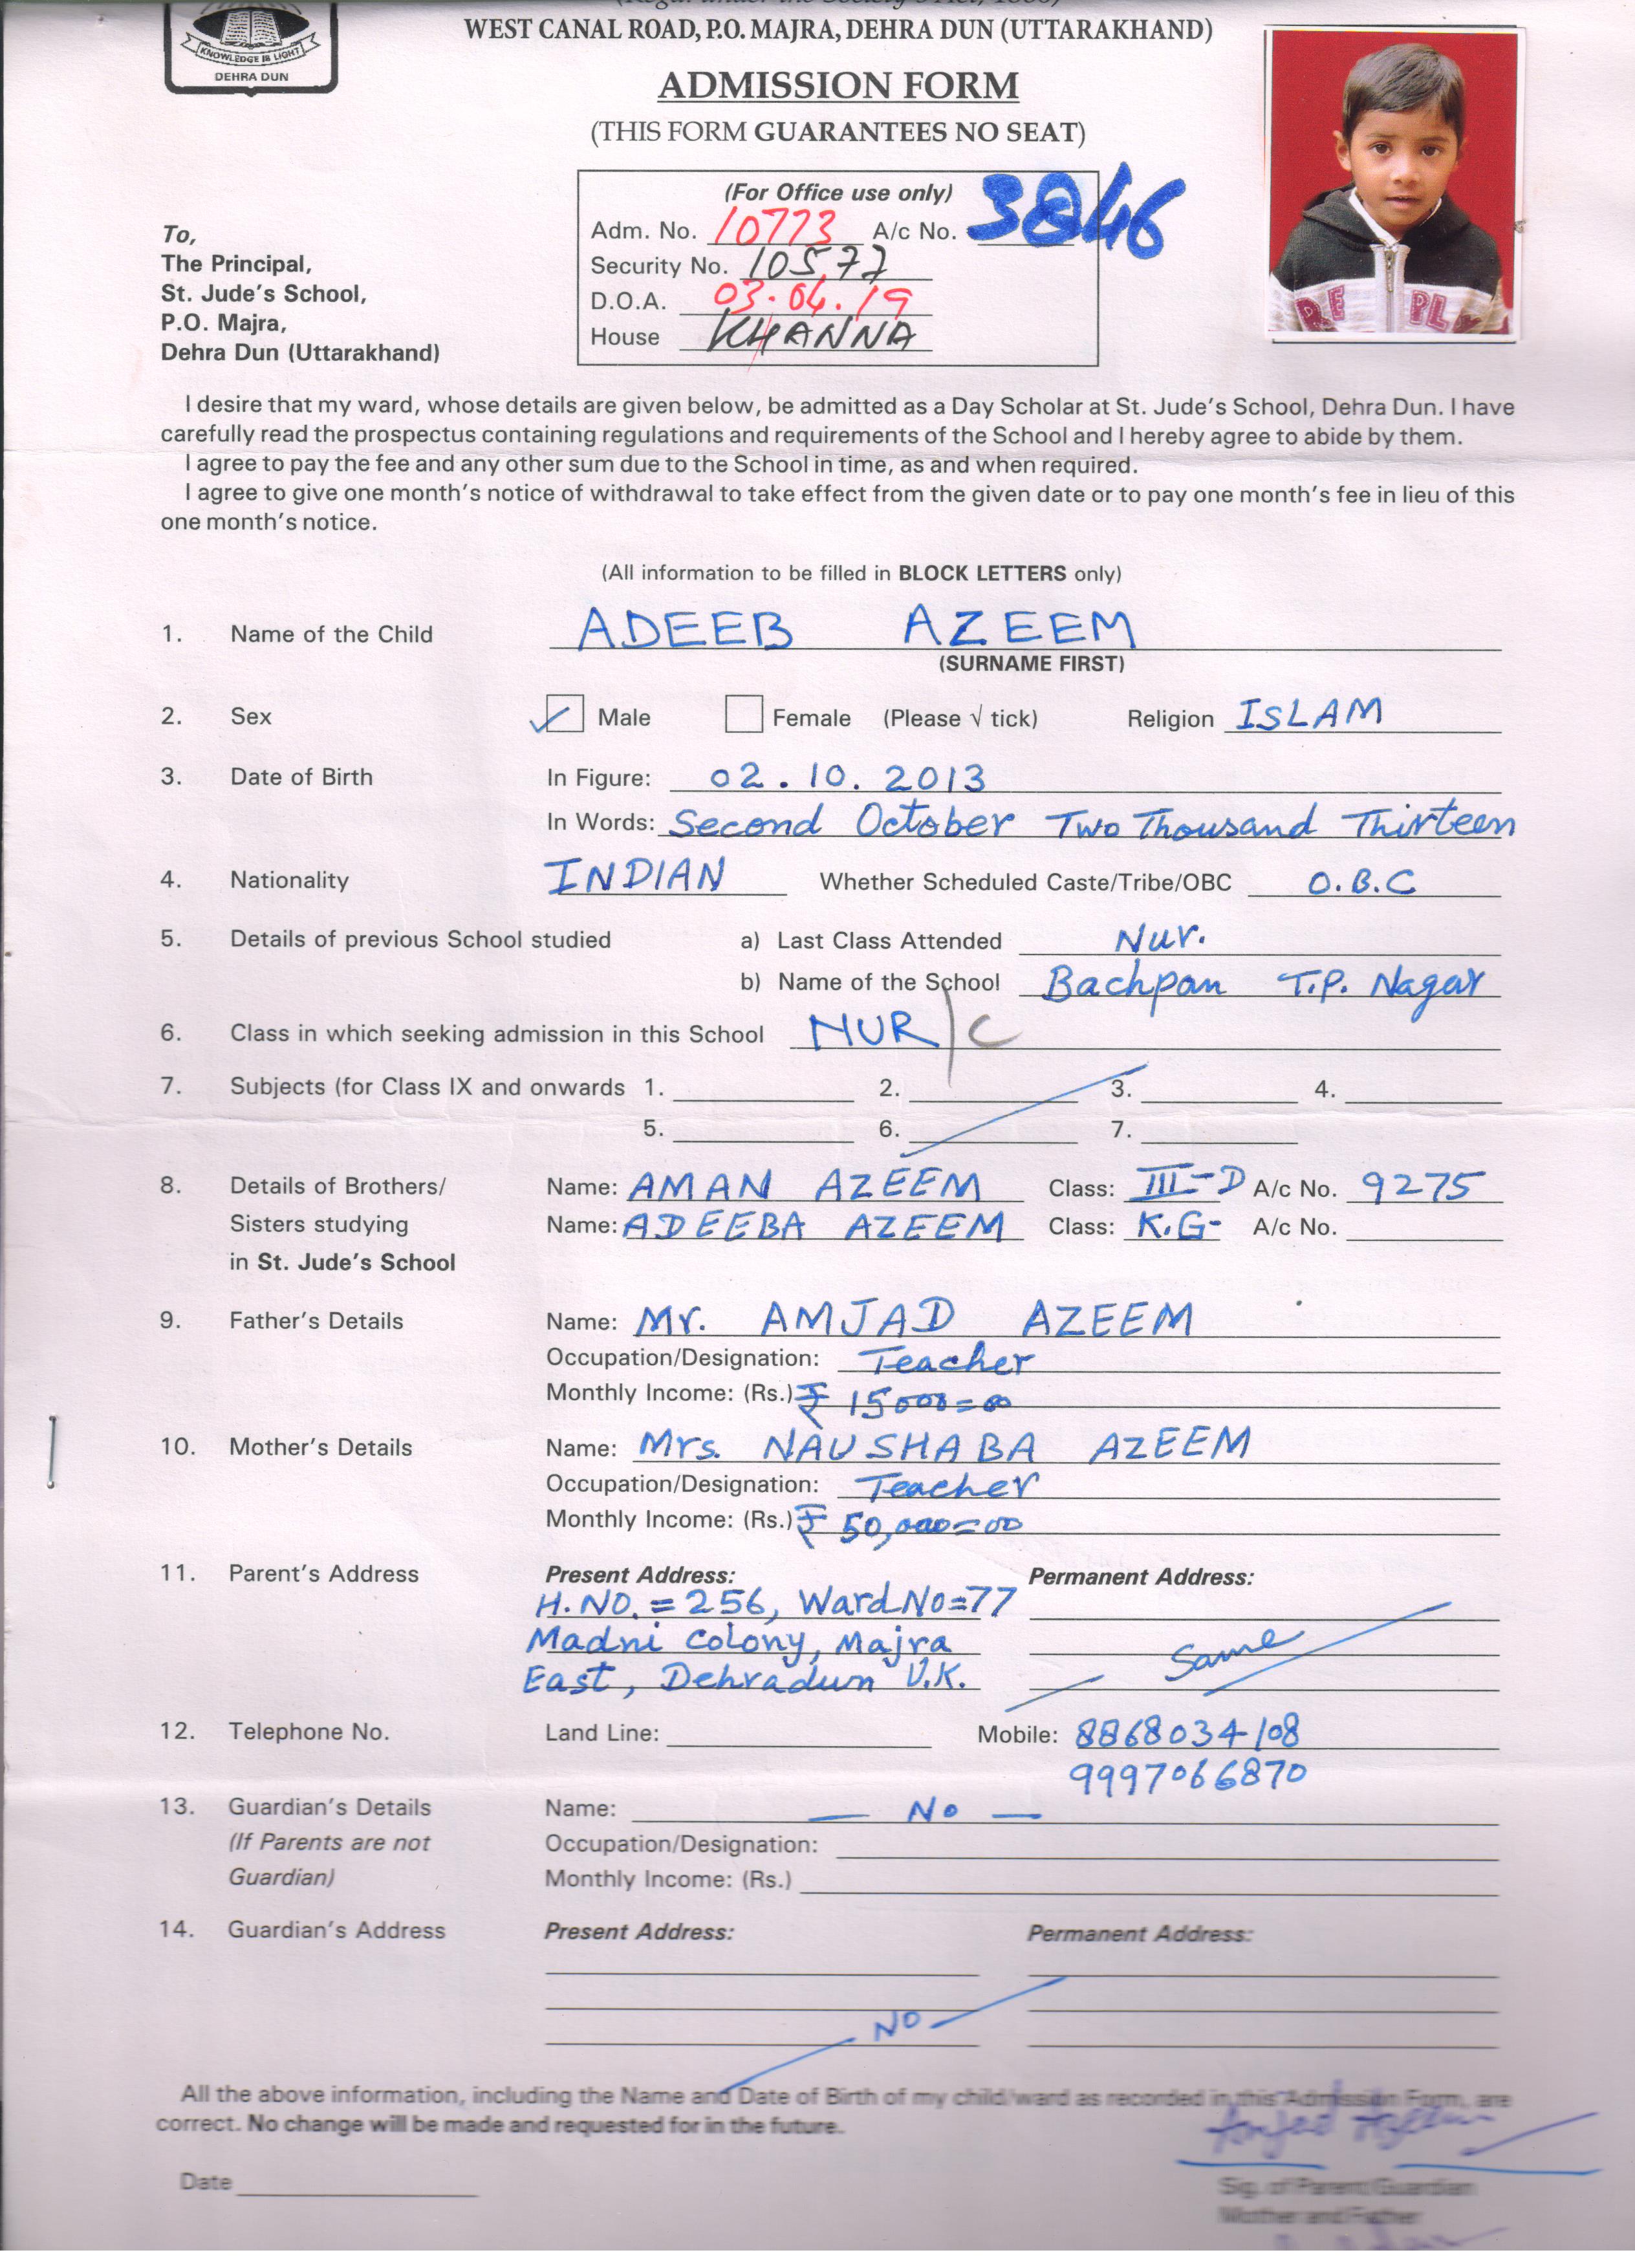 KNOWLEDGE IS LIGHT
DEHRA DUN
WEST CANAL ROAD, P.O. MAJRA, DEHRA DUN (UTTARAKHAND)
ADMISSION FORM
(THIS FORM GUARANTEES NO SEAT)
(For Office use only)
Adm. No. 10773 A/c No. 3846
Security No. 10577
D.O.A. 03.04.19
House KHANNA
To,
The Principal,
St. Jude's School,
P.O. Majra,
Dehra Dun (Uttarakhand)
I desire that my ward, whose details are given below, be admitted as a Day Scholar at St. Jude's School, Dehra Dun. I have
carefully read the prospectus containing regulations and requirements of the School and I hereby agree to abide by them.
I agree to pay the fee and any other sum due to the School in time, as and when required.
I agree to give one month's notice of withdrawal to take effect from the given date or to pay one month's fee in lieu of this
one month's notice.
(All information to be filled in BLOCK LETTERS only)
1. Name of the Child ADEEB AZEEM
(SURNAME FIRST)
2. Sex ✓ Male Female (Please √ tick) Religion ISLAM
3. Date of Birth In Figure: 02.10.2013
In Words: Second October Two Thousand Thirteen
4. Nationality INDIAN Whether Scheduled Caste/Tribe/OBC O.B.C
5. Details of previous School studied a) Last Class Attended Nur.
b) Name of the School Bachpan T.P. Nagar
6. Class in which seeking admission in this School NUR/C
7. Subjects (for Class IX and onwards 1. 2. 3. 4.
5. 6. 7.
8. Details of Brothers/ Name: AMAN AZEEM Class: III-D A/c No. 9275
Sisters studying Name: ADEEBA AZEEM Class: K.G- A/c No.
in St. Jude's School
9. Father's Details Name: Mr. AMJAD AZEEM
Occupation/Designation: Teacher
Monthly Income: (Rs.) ₹ 15000=00
10. Mother's Details Name: Mrs. NAUSHABA AZEEM
Occupation/Designation: Teacher
Monthly Income: (Rs.) ₹ 50,000=00
11. Parent's Address Present Address: Permanent Address:
H.NO. = 256, Ward No=77
Madni Colony, Majra Same
East, Dehradun U.K.
12. Telephone No. Land Line: Mobile: 8868034108
9997066870
13. Guardian's Details Name: — No —
(If Parents are not Occupation/Designation:
Guardian) Monthly Income: (Rs.)
14. Guardian's Address Present Address: Permanent Address:
NO
All the above information, including the Name and Date of Birth of my child/ward as recorded in this Admission Form, are
correct. No change will be made and requested for in the future.
Amjad Azeem
Date
Sig. of Parent/Guardian
Mother and Father